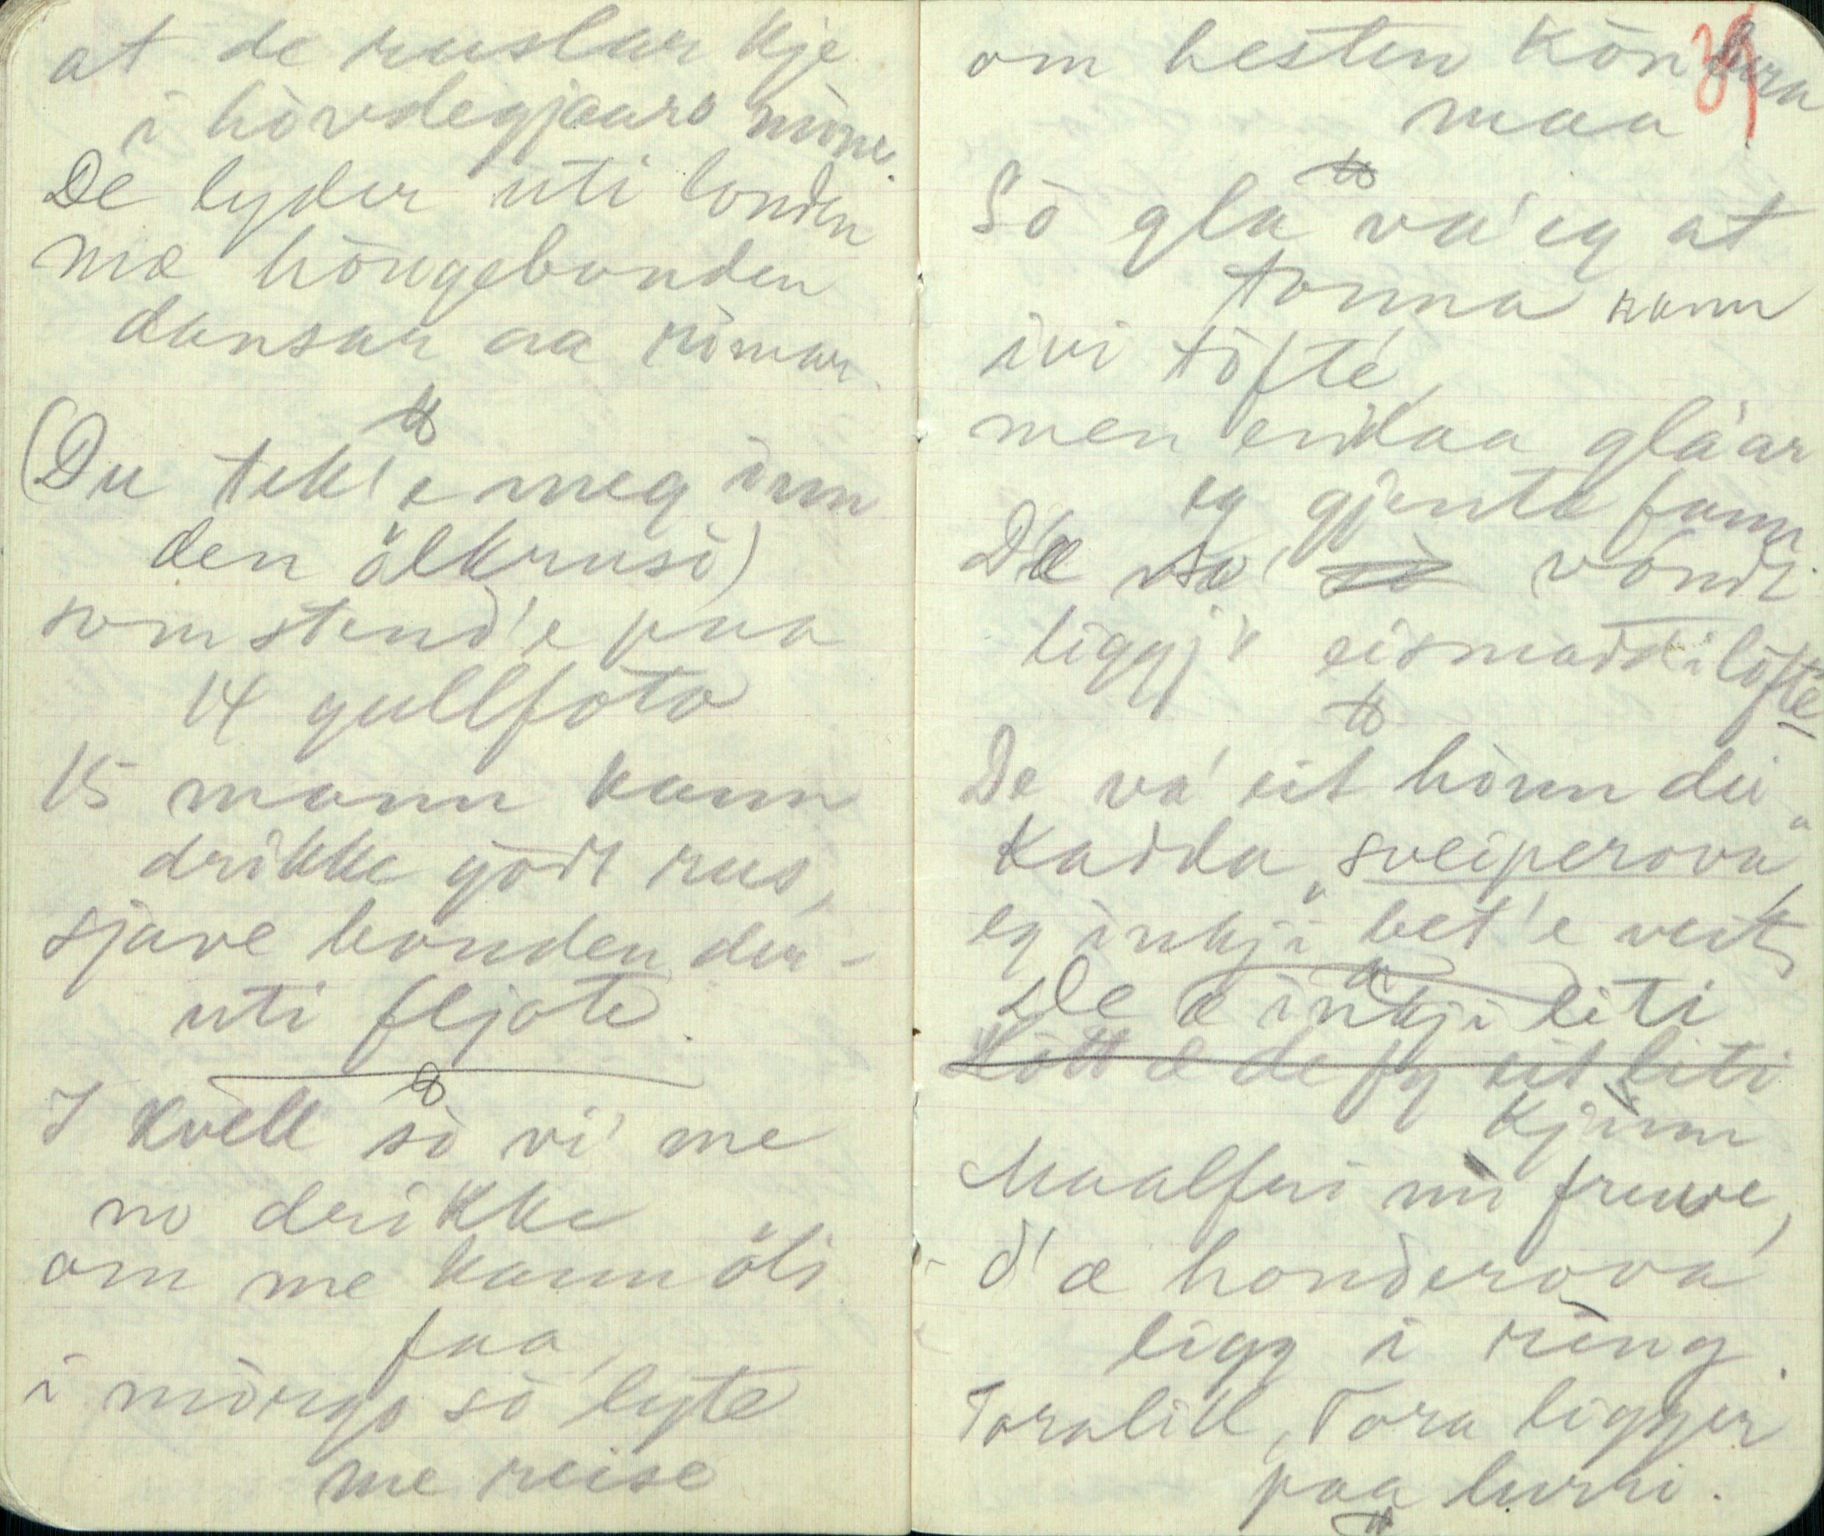 at de ruslar kje
i hövdegjaaro mine.
De lyder uti londen
mæ höugebonden
dansar aa rimar.
(Du tek'e meg inn
den ölkrusi)
som stend'e paa
14 gullfoto
15 mann kann
drikke godt rus,
sjave bonden der-
uti fljote.
I kvell sò vi' me
no drikke
om me kann öli
faa,
i mòrgo sò lyte
me reise
om hesten kòn bera
maa
39
Sò gla va' eg at
tonna rann
ivi töfte,
men endaa gla'ar
eg gjenta fann
D'æ so' vondt
liggj'e
De va' eit hònn dei
kadda "sveiperova"
eg inkji bet'e veit,
De æ inkji liti
Kött æ de fy eit liti
kjinn
Maalfri mi fruve,
d'æ honderova
ligg i ring.
Toralill, Tora ligger
paa lurri.